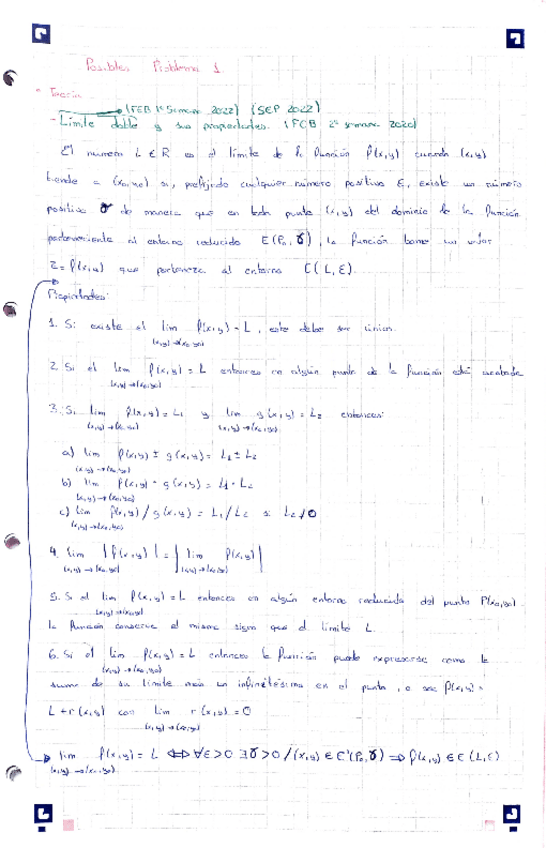 Posibles Problema 1
Teoría
(FEB 1º Semana 2022) (SEP 2022)
- Limite doble y sus propiedades. (FEB 2º semana 2020)
El numero L ∈ R es el límite de la función f(x,y) cuando (x,y)
tiende a (x₀,y₀) si, prefijado cualquier número positivo ε, existe un número
positivo δ de manera que en todo punto (x,y) del dominio de la función
perteneciente al entorno reducido E(P₀,δ), la función tome un valor
z=f(x,y) que pertenezca al entorno E(L,ε).
Propiedades:
1. Si existe el lim f(x,y)=L, este debe ser único.
(x,y)→(x₀,y₀)
2. Si el lim f(x,y)=L entonces en algún punto de la función está acotada
(x,y)→(x₀,y₀)
3. Si lim f(x,y)=L₁ y lim g(x,y)=L₂ entonces:
(x,y)→(x₀,y₀) (x,y)→(x₀,y₀)
a) lim f(x,y) ± g(x,y) = L₁ ± L₂
(x,y)→(x₀,y₀)
b) lim f(x,y) · g(x,y) = L₁ · L₂
(x,y)→(x₀,y₀)
c) lim f(x,y)/g(x,y) = L₁/L₂ si L₂≠0
(x,y)→(x₀,y₀)
4. lim |f(x,y)| = | lim f(x,y)|
(x,y)→(x₀,y₀) (x,y)→(x₀,y₀)
5. Si el lim f(x,y)=L entonces en algún entorno reducido del punto P(x₀,y₀)
(x,y)→(x₀,y₀)
la función conserva el mismo signo que el límite L.
6. Si el lim f(x,y)=L entonces la función puede expresarse como la
(x,y)→(x₀,y₀)
suma de su límite más un infinitésimo en el punto, o sea f(x,y)=
L+r(x,y) con lim r(x,y)=0
(x,y)→(x₀,y₀)
lim f(x,y)=L ⟺ ∀ε>0 ∃δ>0/(x,y)∈E'(P₀,δ) ⟹ f(x,y)∈E(L,ε)
(x,y)→(x₀,y₀)